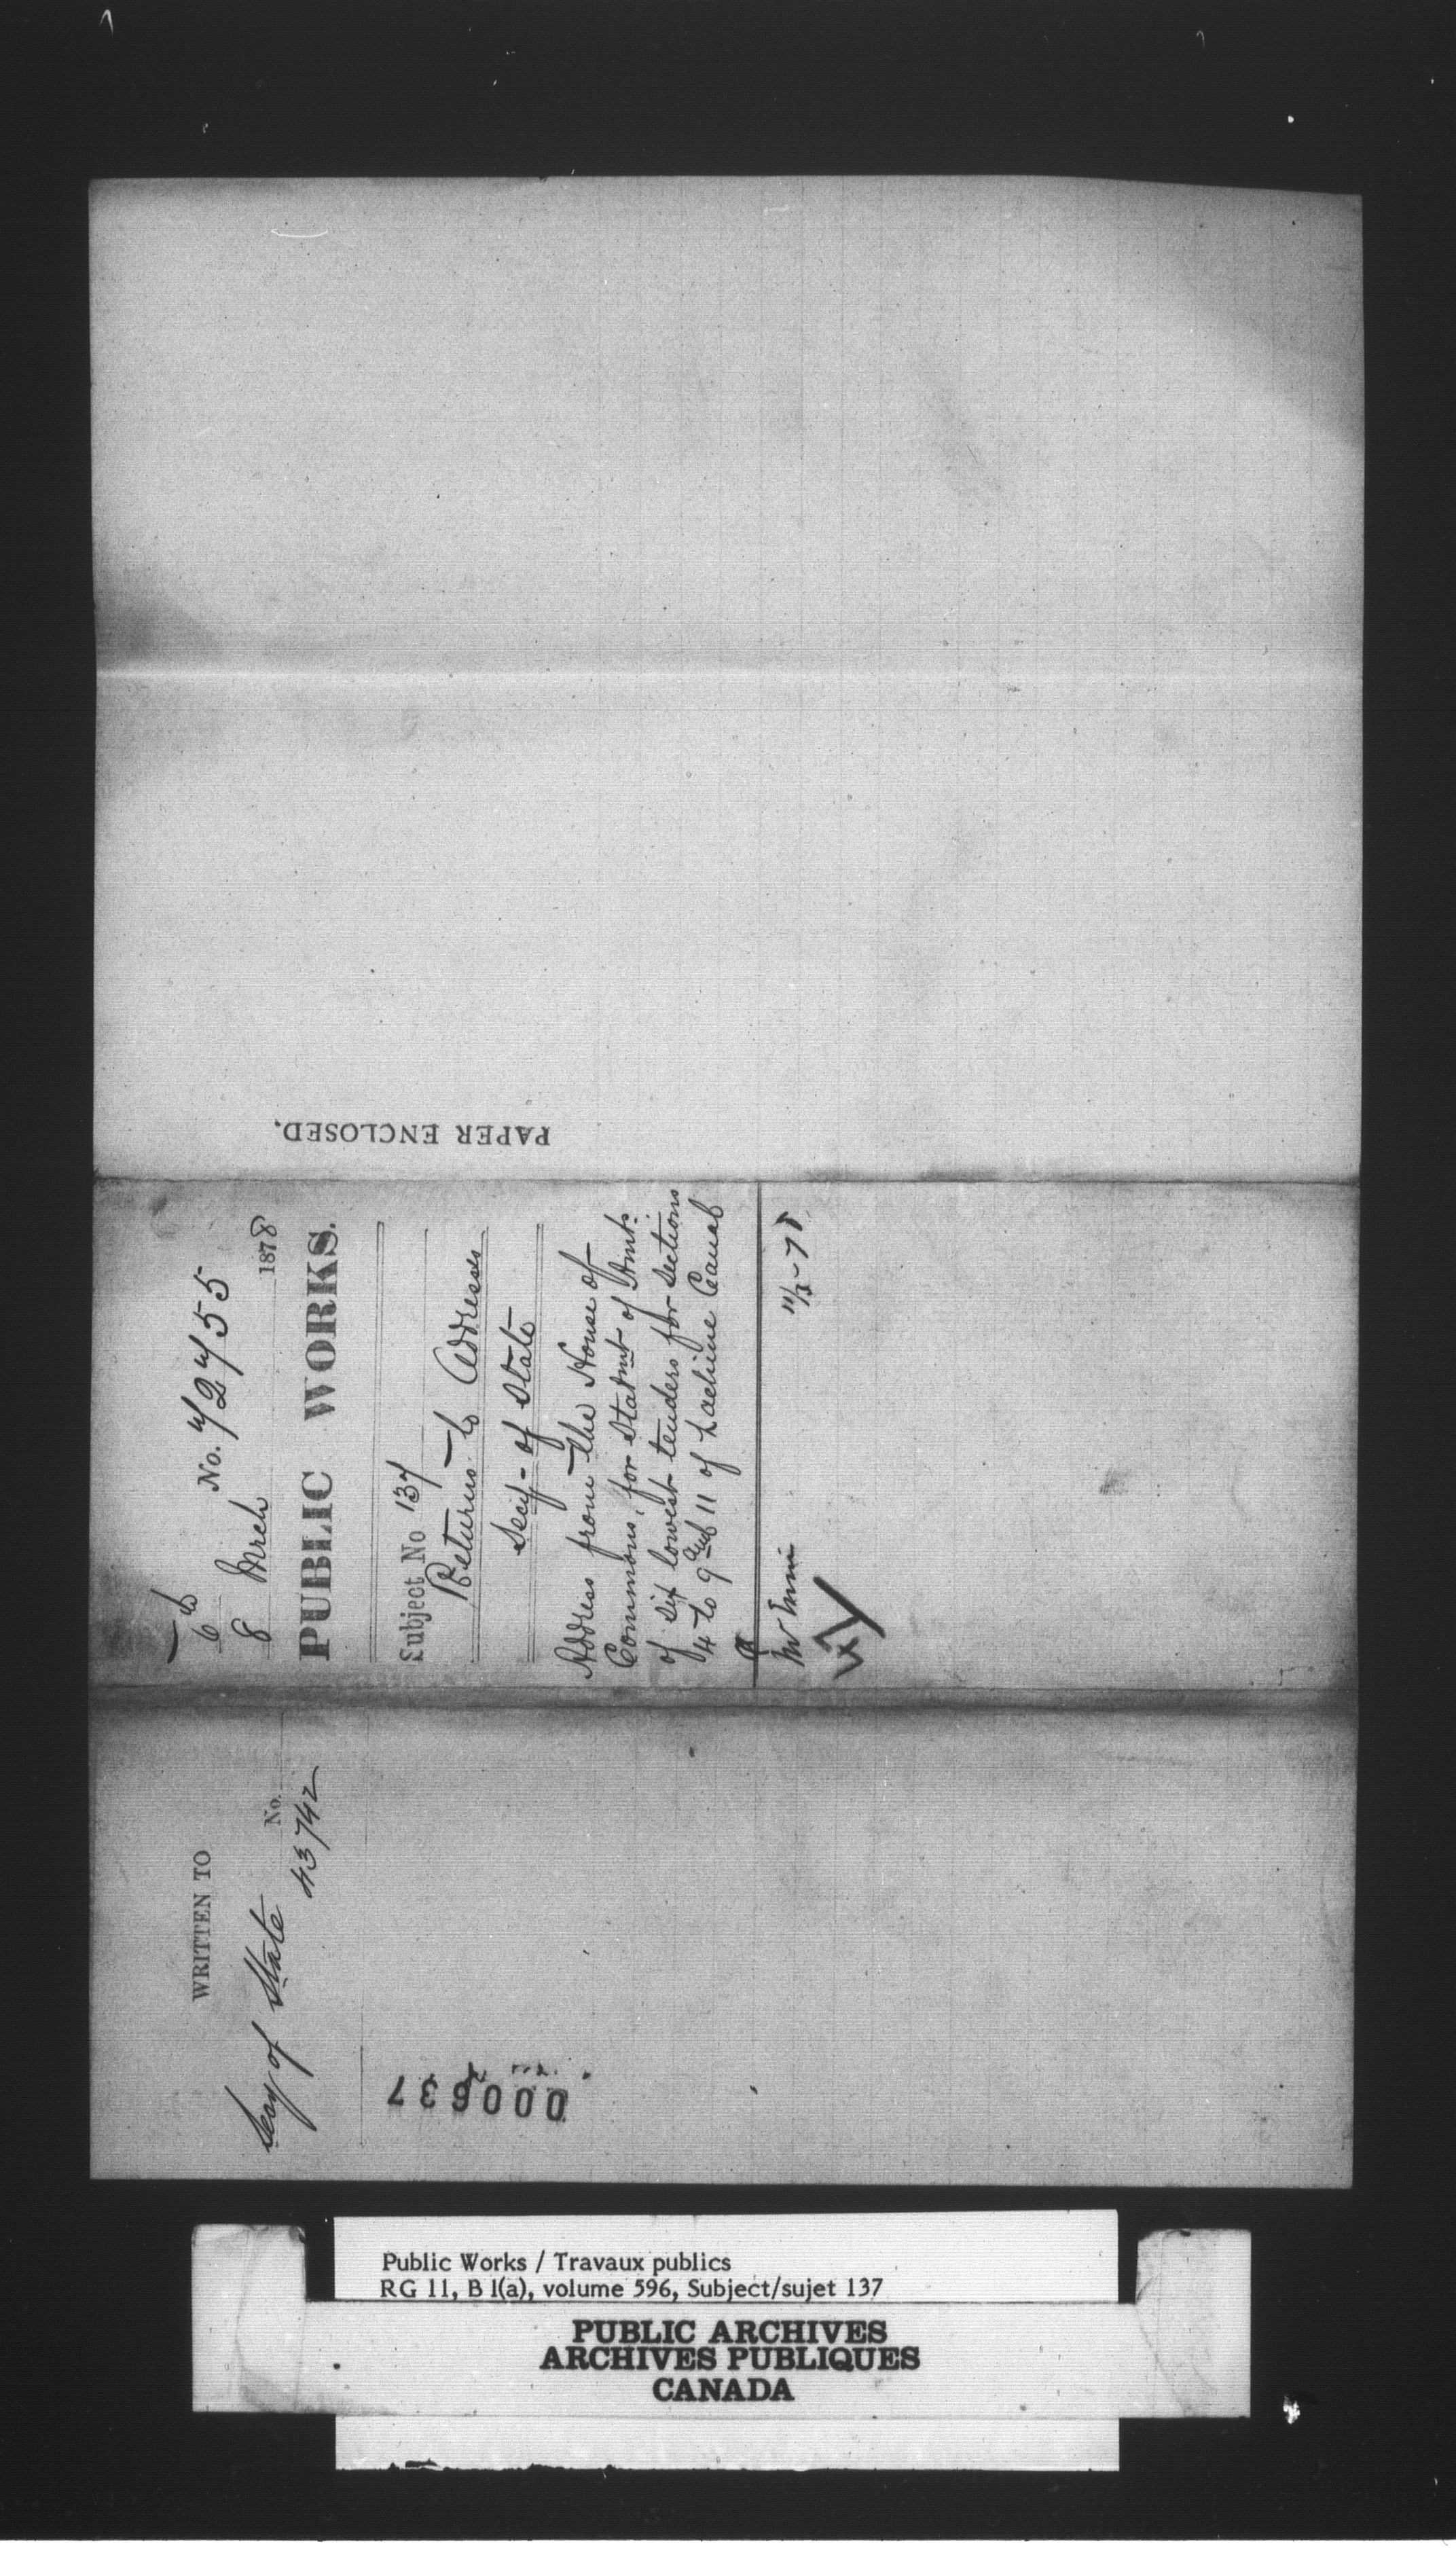 PAPER ENCLOSED.
No. 72755
6th
8 Mrch 1878
PUBLIC WORKS.
Subject No 137
Returns to Addresses
Secy- of State
Address from the House of
Commons, for Statmt of Amts
of six lowest tenders for Sections
4 to 9 and 11 of Lachine Canal
11/3-78
WRITTEN TO
No.
Secy of State 43742
000637
Public Works / Travaux publics
RG 11, B 1(a), volume 596, Subject/sujet 137
PUBLIC ARCHIVES
ARCHIVES PUBLIQUES
CANADA